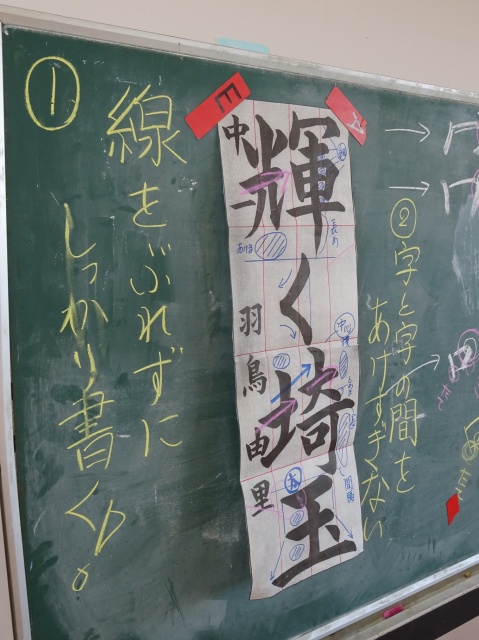 ②字と字の間を
あけすぎない
A
輝く埼玉
E
中
羽鳥由里
長め
あける
中心
太
間隔
①
線をぶれずに
しっかり書く。